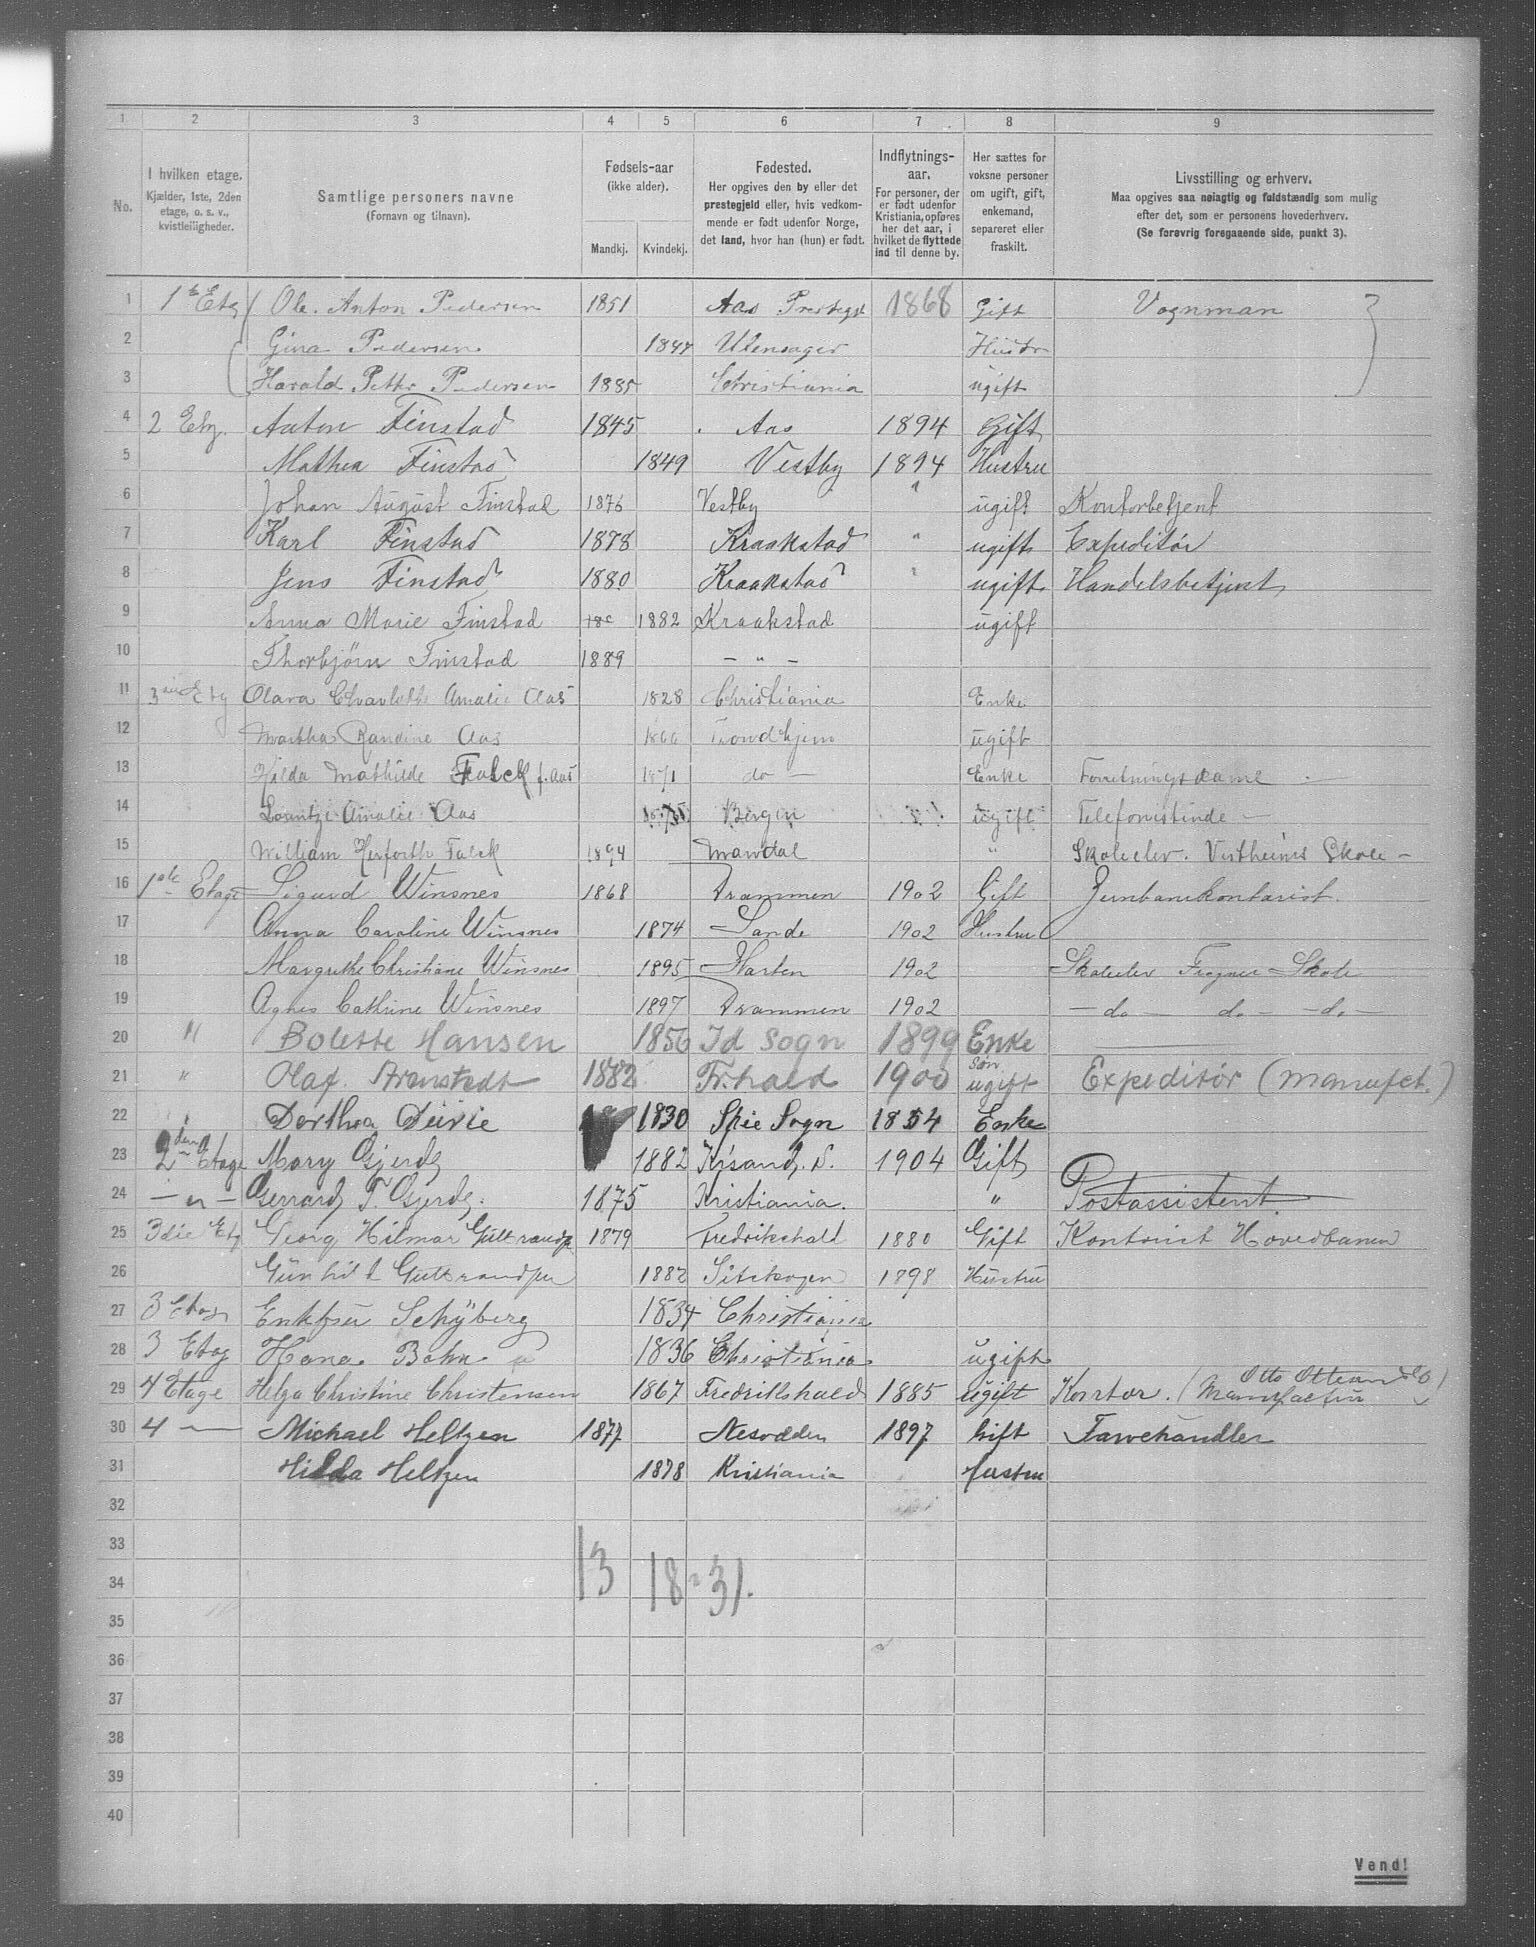 1 2 3 4 5 6 7 8 9
No.
I hvilken etage.
Kjælder, 1ste, 2den
etage, o. s. v.,
kvistleiligheder.
Samtlige personers navne
(Fornavn og tilnavn).
Fødsels-aar
(ikke alder).
Mandkj. Kvindekj.
Fødested.
Her opgives den by eller det
præstegjeld eller, hvis vedkom-
mende er født udenfor Norge,
det land, hvor han (hun) er født.
Indflytnings-
aar.
For personer, der
er født udenfor
Kristiania, opføres
her det aar, i
hvilket de flyttede
ind til denne by.
Her sættes for
voksne personer
om ugift, gift,
enkemand,
separeret eller
fraskilt.
Livsstilling og erhverv.
Maa opgives saa nøiagtig og fuldstændig som mulig
efter det, som er personens hovederhverv.
(Se forøvrig foregaaende side, punkt 3).
1 1ste Etg Ole Anton Pedersen 1851 Aas Prestegj 1868 Gift Vognman
2 Gina Pedersen 1847 Ullensager Hustr
3 Harald Petter Pedersen 1885 Christiania ugift
4 2 Etg. Anton Finstad 1845 Aas 1894 Gift
5 Mathea Finstad 1849 Vestby 1894 Hustru
6 Johan August Finstad 1876 Vestby " ugift Kontorbetjent
7 Karl Finstad 1878 Kraakstad " ugift Expeditør
8 Jens Finstad 1880 Kraakstad " ugift Handelsbetjent
9 Anna Marie Finstad 1882 Kraakstad ugift
10 Thorbjørn Finstad 1889 — " —
11 3die Etg Olava Charlotte Amalie Aas 1828 Christiania Enke
12 Martha Randine Aas 1866 Trondhjem ugift
13 Hilda Mathilde Falck f. Aas 1871 do — Enke Forretningsdame —
14 Lorentze Amalie Aas Bergen ugift Telefonistinde —
15 William Herforth Falck 1894 Mandal " Skoleelev. Vestheims Skole —
16 1ste Etage Sigurd Winsnes 1868 Drammen 1902 Gift Jernbanekontorist.
17 Anna Caroline Winsnes 1874 Sande 1902 Hustru
18 Margrethe Christiane Winsnes 1895 Horten 1902 Skoleelev Frogner Skole
19 Agnes Cathrine Winsnes 1897 Drammen 1902 — do — do — do —
20 " Bolette Hansen 1856 Id Sogn 1899 Enke
21 " Olaf. Arenstedt 1882 Fr.hald 1900 Søn ugift Expeditør (Manufct.)
22 " Dorthea 1830 Sogn 1854 Enke
23 2den Etage Mary Gjerdz 1882 Krsand. S. 1904 Gift
24 — " — Gerrard T. Gjerdz. 1875 Kristiania. " Postassistent.
25 3die Etg Georg Hilmar 1879 Fredrikshald 1880 Gift Kontorist Hovedbanen
26 Gunhild 1882 Sitskogen 1898 Hustru
27 3 Etag Enkefru Schÿberg 1834 Christiania
28 3 Etag Hana Bohn 1836 Christiania ugift
29 4 Etage Helga Christine Christensen 1867 Fredrikshald 1885 ugift Kontor. (Otto & Co Manufactur)
30 4 — Michael Heltzen 1877 Nesodden 1897 Gift Farvehandler
31 Hilda Heltzen 1878 Kristiania Hustru
32
33
34 13 18 = 31.
35
36
37
38
39
40
Vend!